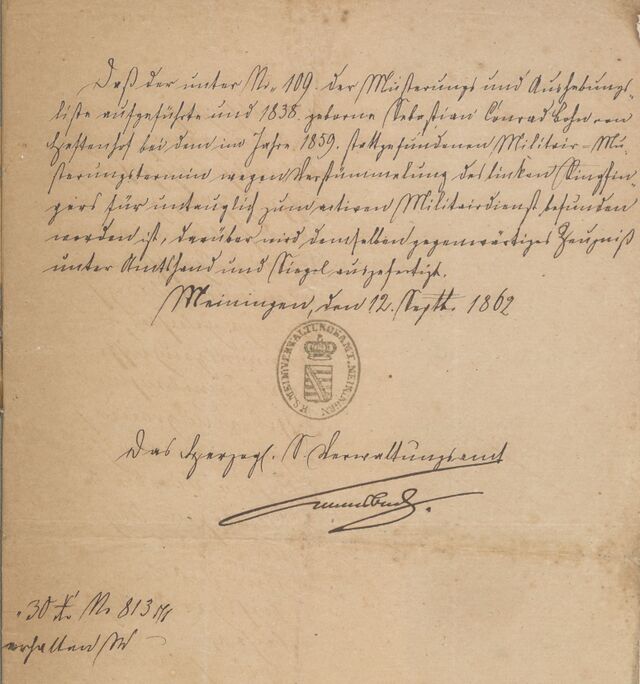 Daß der unter No. 109. der Musterungs und Aushebungs-
liste aufgeführte und 1838. geborne Sebastian Conrad Cohn von
bei dem im Jahre 1859. stattgefundenen Militair-Mu-
sterungstermin wegen Verstümmelung des linken Ringfin
gers für untauglich zum activen Militairdienst befunden
worden ist, darüber wird demselben gegenwärtiges Zeugniß
unter Amtshand und Siegel ausgefertigt.
Meiningen, den 12. Septb. 1862
H. S. MEIN. VERWALTUNGSAMT. MEININGEN
Das Herzogl. S. Verwaltungsamt
30 x No 813
erhalten